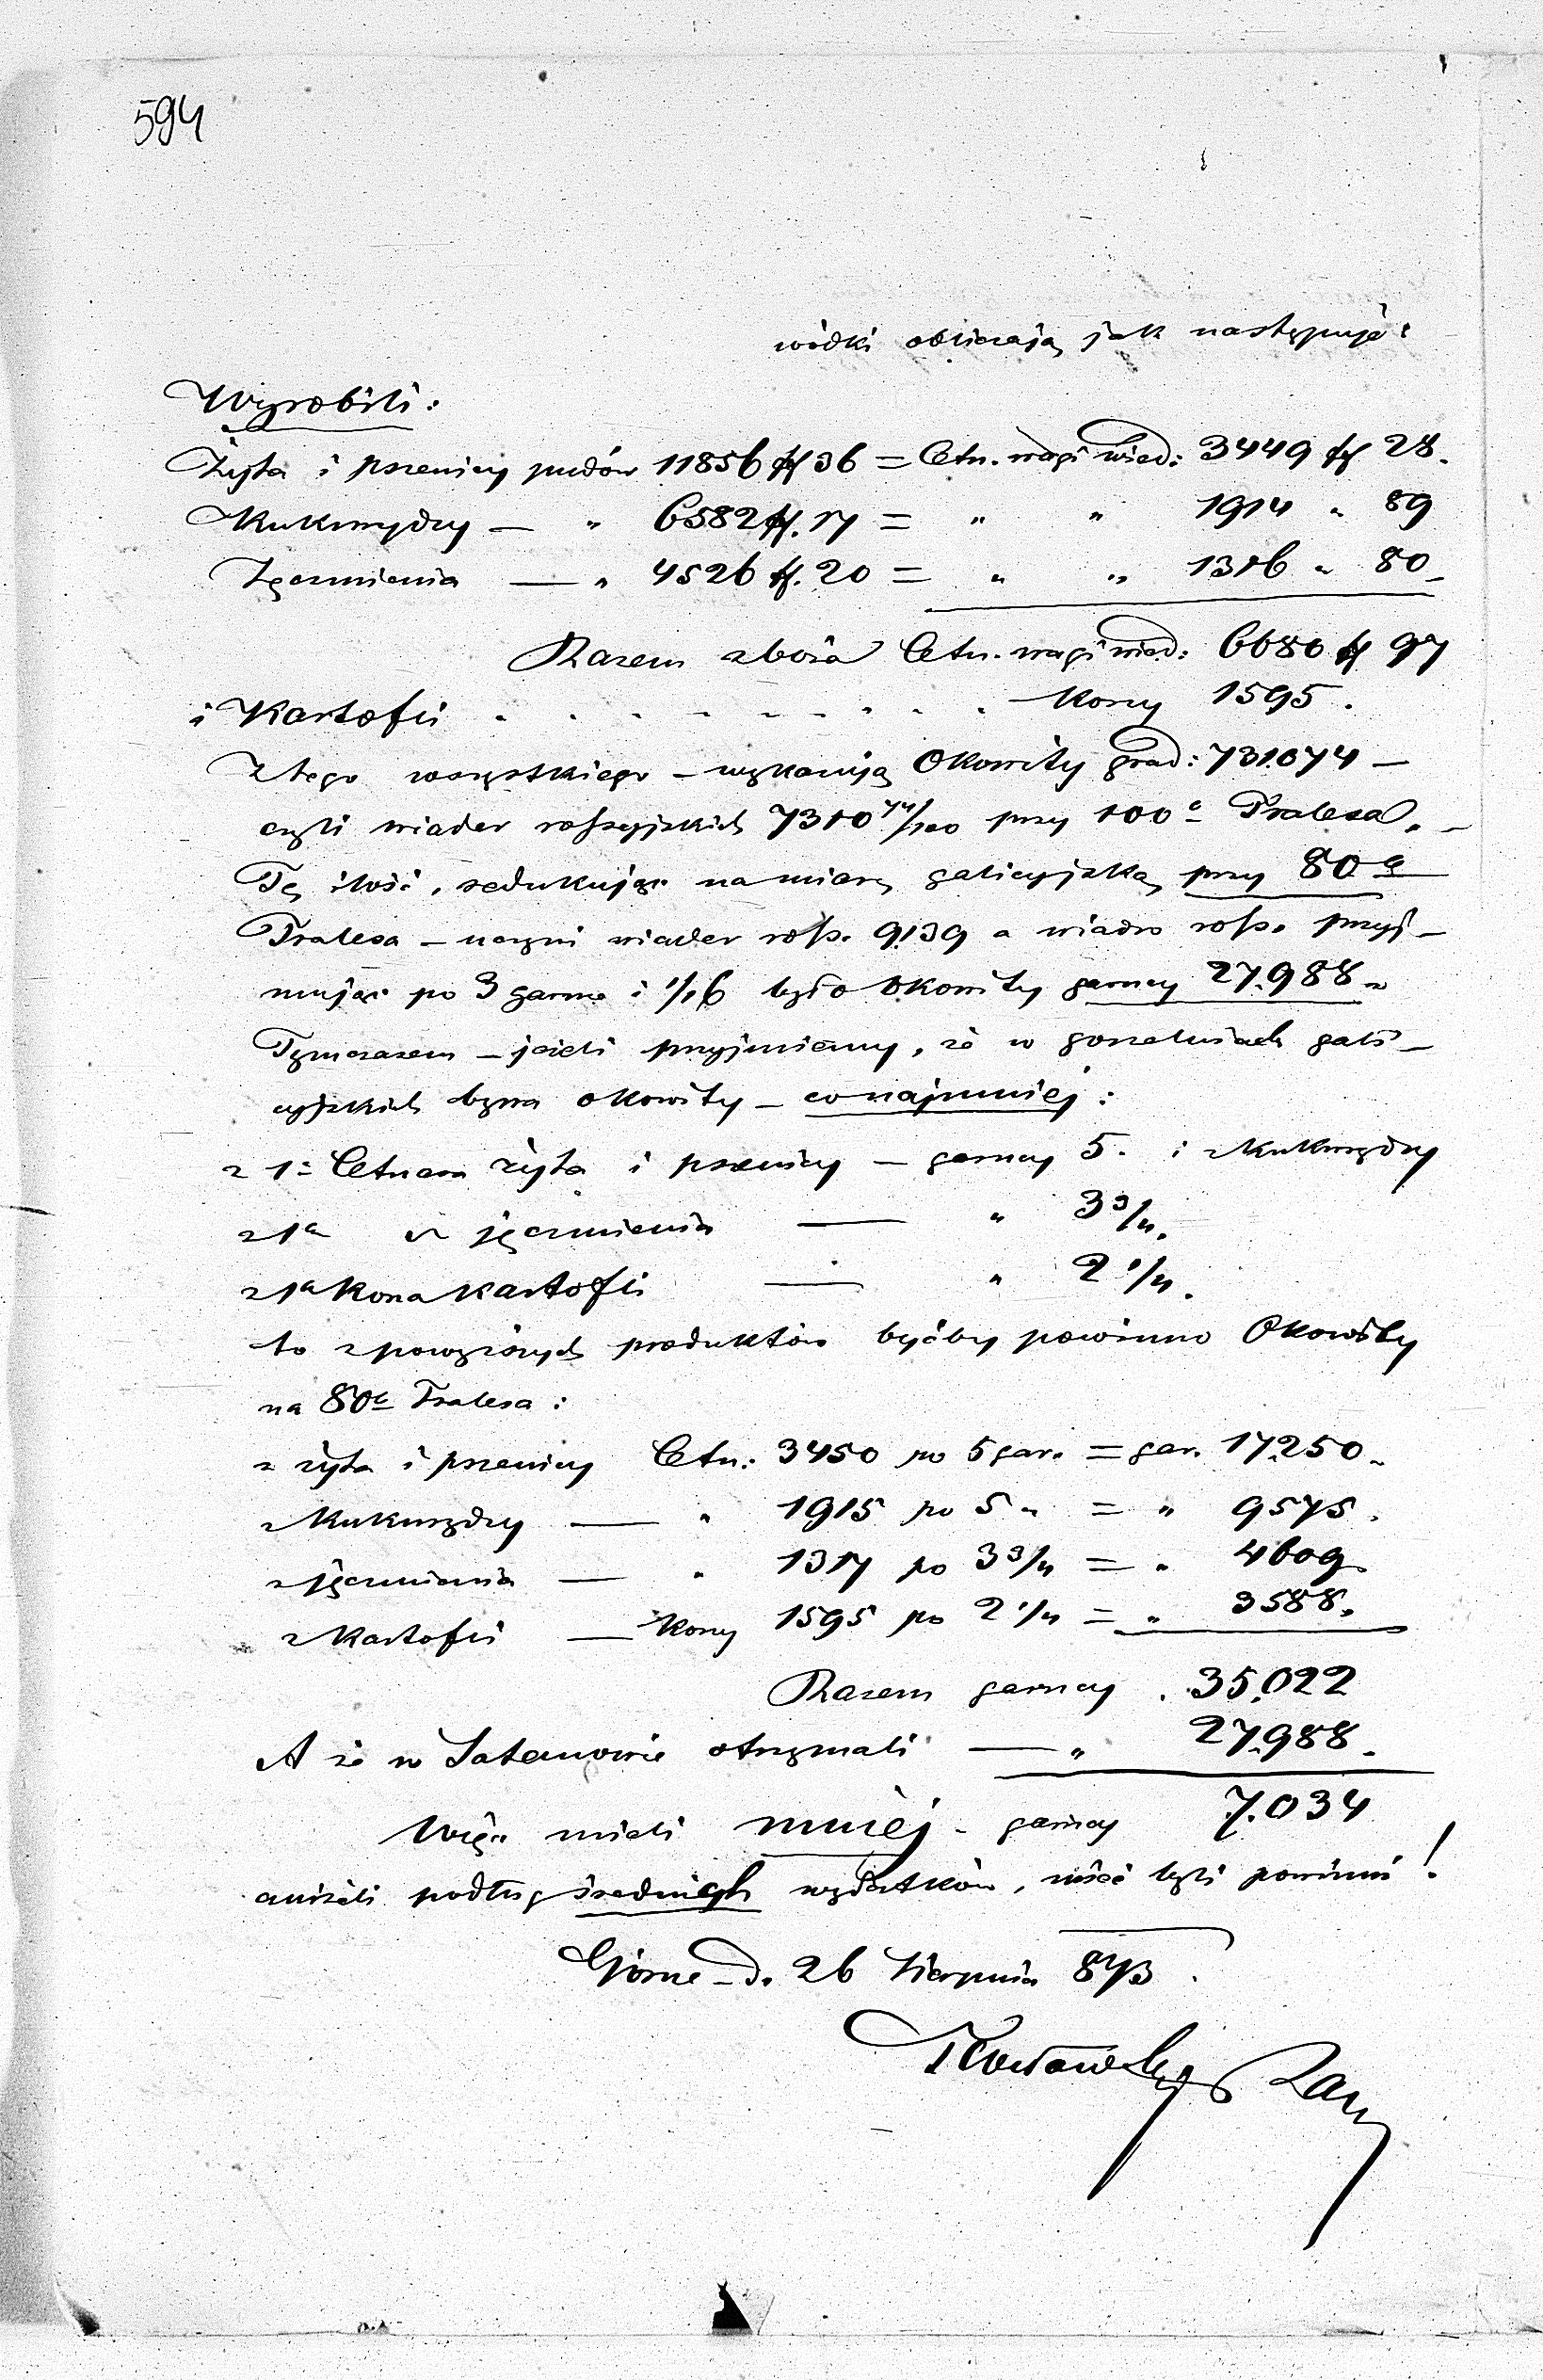 594
wódki obliczają jak następuje:
Wyrobili:
Żyta i pszenicy pudów 11856 ff 36 = Cetn. wagi wied: 3449 ff 28.
Kukurydzy — " 6582 ff. 17 = " " 1914 " 89
Jęczmienia — " 4526 ff. 20 = " " 1316 " 80
Razem zboża Cetn. wagi wied: 6680 ff 97
i Kartofli . . . . . . . . . . Korcy 1595.
Z tego wszystkiego – uzyskują Okowity grad: 731.074 —
czyli wiader rossyjskich 7310 74/100 przy 100° Tralesa. –
Tę ilość, redukując na miarę galicyjską przy 80°
Tralesa – uczyni wiader ross. 9.139 a wiadro ross. przyj–
mując po 3 garnce i 1/16 było Okowity garncy 27.988 "
Tymczasem – jeżeli przyjmiemy, że w gorzelniach gali–
cyjskich bywa okowity – co najmniej:
z 1° Cetnara żyta i pszenicy — garncy 5. i Kukurydzy
z 1a " jęczmienia — " 3 3/4.
z 1a Korca kartofli — " 2 1/4.
to z powyższych produktów byćby powinno Okowity
na 80° Tralesa:
z żyta i pszenicy Cetn: 3450 po 5 gar. = gar. 17.250.
z Kukurydzy — " 1915 po 5 " = " 9575.
z jęczmienia — " 1317 po 3 3/4 = " 4609
z Kartofli — Korcy 1595 po 2 1/4 = " 3588.
Razem garncy . 35.022
A że w Satanowie otrzymali — " 27.988.
Więc mieli mniej – garncy 7.034
aniżeli podług średnich wydatków, mieć byli powinni!
d. 26 Sierpnia 873.